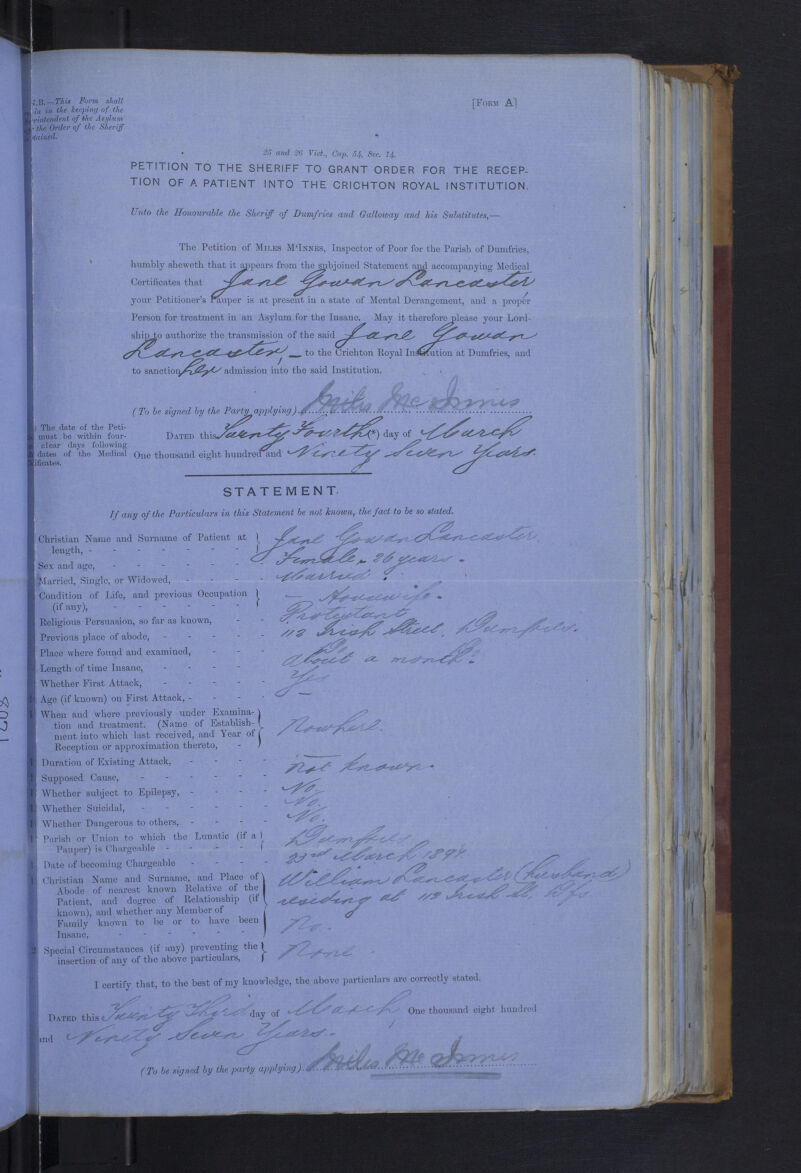 N.B.—This Form shall
in the keeping of the
of the Asylum
the Order of the Sheriff
[FORM A]
25 and 26 Vict., Cap. 54, Sec. 14.
PETITION TO THE SHERIFF TO GRANT ORDER FOR THE RECEP-
TION OF A PATIENT INTO THE CRICHTON ROYAL INSTITUTION.
Unto the Honourable the Sheriff of Dumfries and Galloway and his Substitutes,—
The Petition of MILES M'INNES, Inspector of Poor for the Parish of Dumfries,
humbly sheweth that it appears from the subjoined Statement and accompanying Medical
Certificates that Jane Gowan Lancaster
your Petitioner's Pauper is at present in a state of Mental Derangement, and a proper
Person for treatment in an Asylum for the Insane. May it therefore please your Lord-
ship to authorize the transmission of the said Jane Gowan
Lancaster, — to the Crichton Royal Institution at Dumfries, and
to sanction her admission into the said Institution.
(To be signed by the Party applying) Miles McInnes
The date of the Peti-
must be within four-
clear days following
dates of the Medical
DATED this Twenty Fourth (*) day of March
One thousand eight hundred and Ninety Seven Years.
STATEMENT.
If any of the Particulars in this Statement be not known, the fact to be so stated.
Christian Name and Surname of Patient at length, - Jane Gowan Lancaster
Sex and age, - Female - 26 years.
Married, Single, or Widowed, - Married
Condition of Life, and previous Occupation (if any), - Housewife.
Religious Persuasion, so far as known, - Protestant
Previous place of abode, - 113 Irish Street, Dumfries.
Place where found and examined, - Do. Do.
Length of time Insane, - about a month.
Whether First Attack, - Yes
Age (if known) on First Attack, - —
When and where previously under Examina-
tion and treatment. (Name of Establish-
ment into which last received, and Year of
Reception or approximation thereto, - Nowhere.
Duration of Existing Attack, -
Supposed Cause, - not known.
Whether subject to Epilepsy, - No.
Whether Suicidal, - No.
Whether Dangerous to others, - No.
Parish or Union to which the Lunatic (if a
Pauper) is Chargeable - Dumfries
Date of becoming Chargeable - 23rd March 1897.
Christian Name and Surname, and Place of William Lancaster (husband)
Abode of nearest known Relative of the residing at 113 Irish St. Dfs
Patient, and degree of Relationship (if
known), and whether any Member of
Family known to be or to have been
Insane, - No.
Special Circumstances (if any) preventing the
insertion of any of the above particulars, None.
I certify that, to the best of my knowledge, the above particulars are correctly stated.
DATED this Twenty Third day of March One thousand eight hundred
and Ninety Seven Years.
(To be signed by the party applying) Miles McInnes